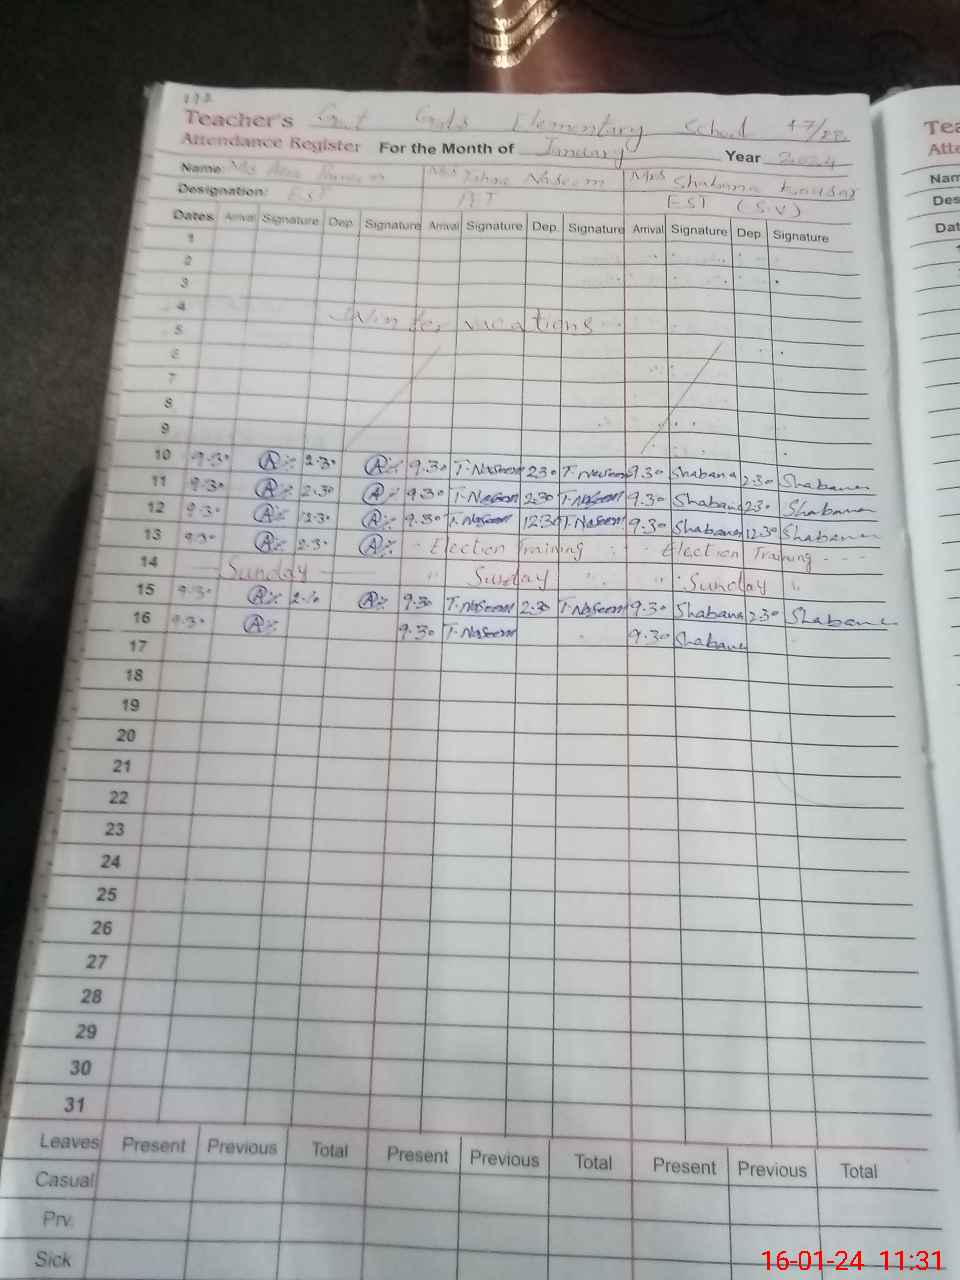 Teacher's Govt Girls Elementary School 47/
Attendance Register For the Month of January Year 2024
Name: Naseem Mrs Shabana Kausar
Designation: EST EST (S.V)
Dates Arrival Signature Dep. Signature Arrival Signature Dep. Signature Arrival Signature Dep Signature
1
2
3
4
Winter vacations
5
6
7
8
9
10 9.30 A 2.30 A 9.30 T.Naseem 2.30 T.Naseem 9.30 Shabana 2.30 Shabana
11 9.30 A 2.30 A 9.30 T.Naseem 2.30 T.Naseem 9.30 Shabana 2.30 Shabana
12 9.30 A A 9.30 T.Naseem 12.30 T.Naseem 9.30 Shabana 12.30 Shabana
13 9.30 A 2.30 A Election Training Election Training
14 Sunday Sunday Sunday
15 9.30 A A 9.30 T.Naseem 2.30 T.Naseem 9.30 Shabana 2.30 Shabana
16 9.30 A 9.30 T.Naseem 9.30 Shabana
17
18
19
20
21
22
23
24
25
26
27
28
29
30
31
Leaves Present Previous Total Present Previous Total Present Previous Total
Casual
Prv.
Sick
16-01-24 11:31